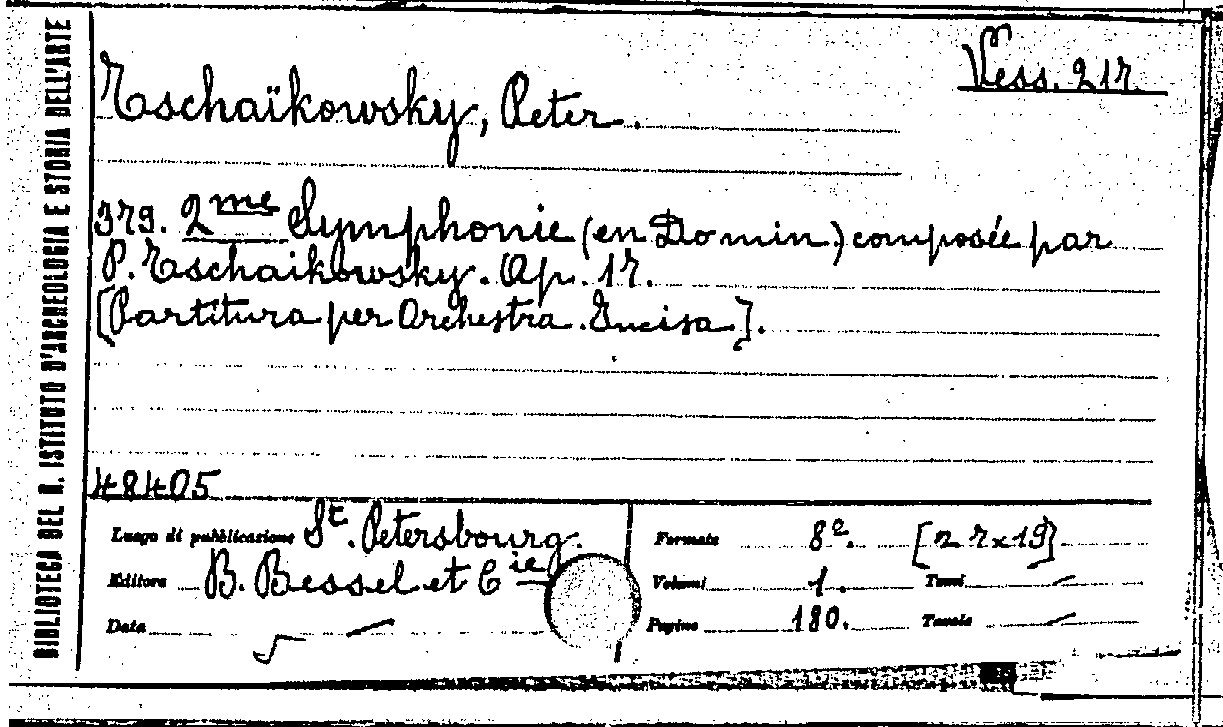 BIBLIOTECA DEL R. ISTITUTO D'ARCHEOLOGIA E STORIA DELL'ARTE
Vess. 217.
Tschaïkowsky, Peter.
379. 2me Symphonie (en Do min.) composée par
P. Tschaikowsky. Op. 17.
[Partitura per Orchestra. Incisa.].
48405
Luogo di pubblicazione St. Petersbourg.
Editore B. Bessel et Cie
Data —
Formato 8º. [27x19]
Volumi 1. Tomi —
Pagine 180. Tavole —